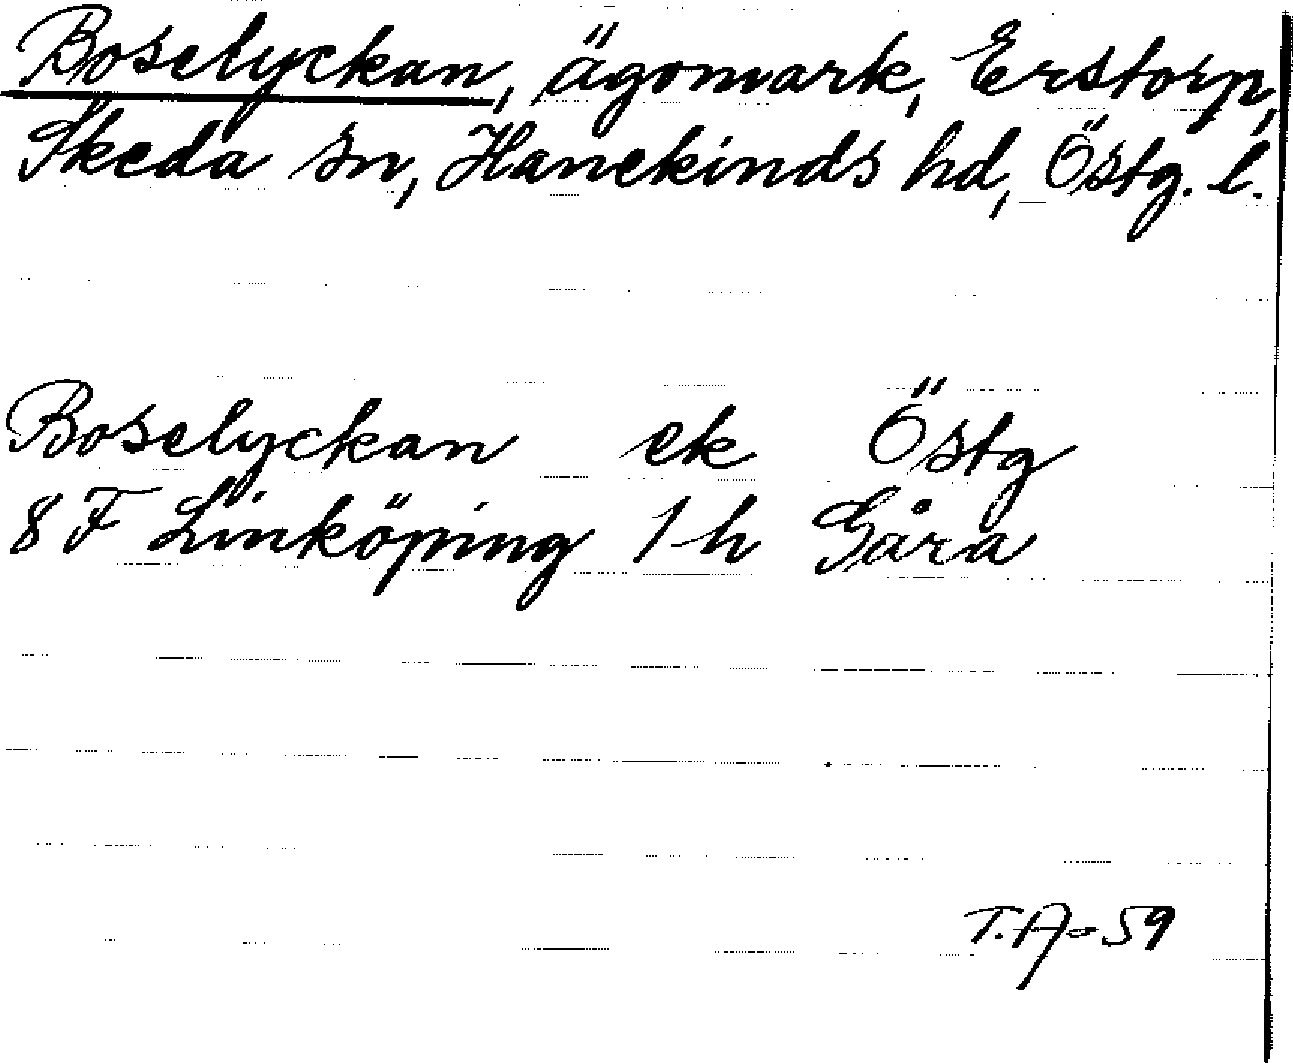 Boselyckan, ägomark, Erstorp,
Skeda sn, Hanekinds hd, Östg. l.
Boselyckan ek Östg
8 F Linköping 1 h Gåra
T.A-59